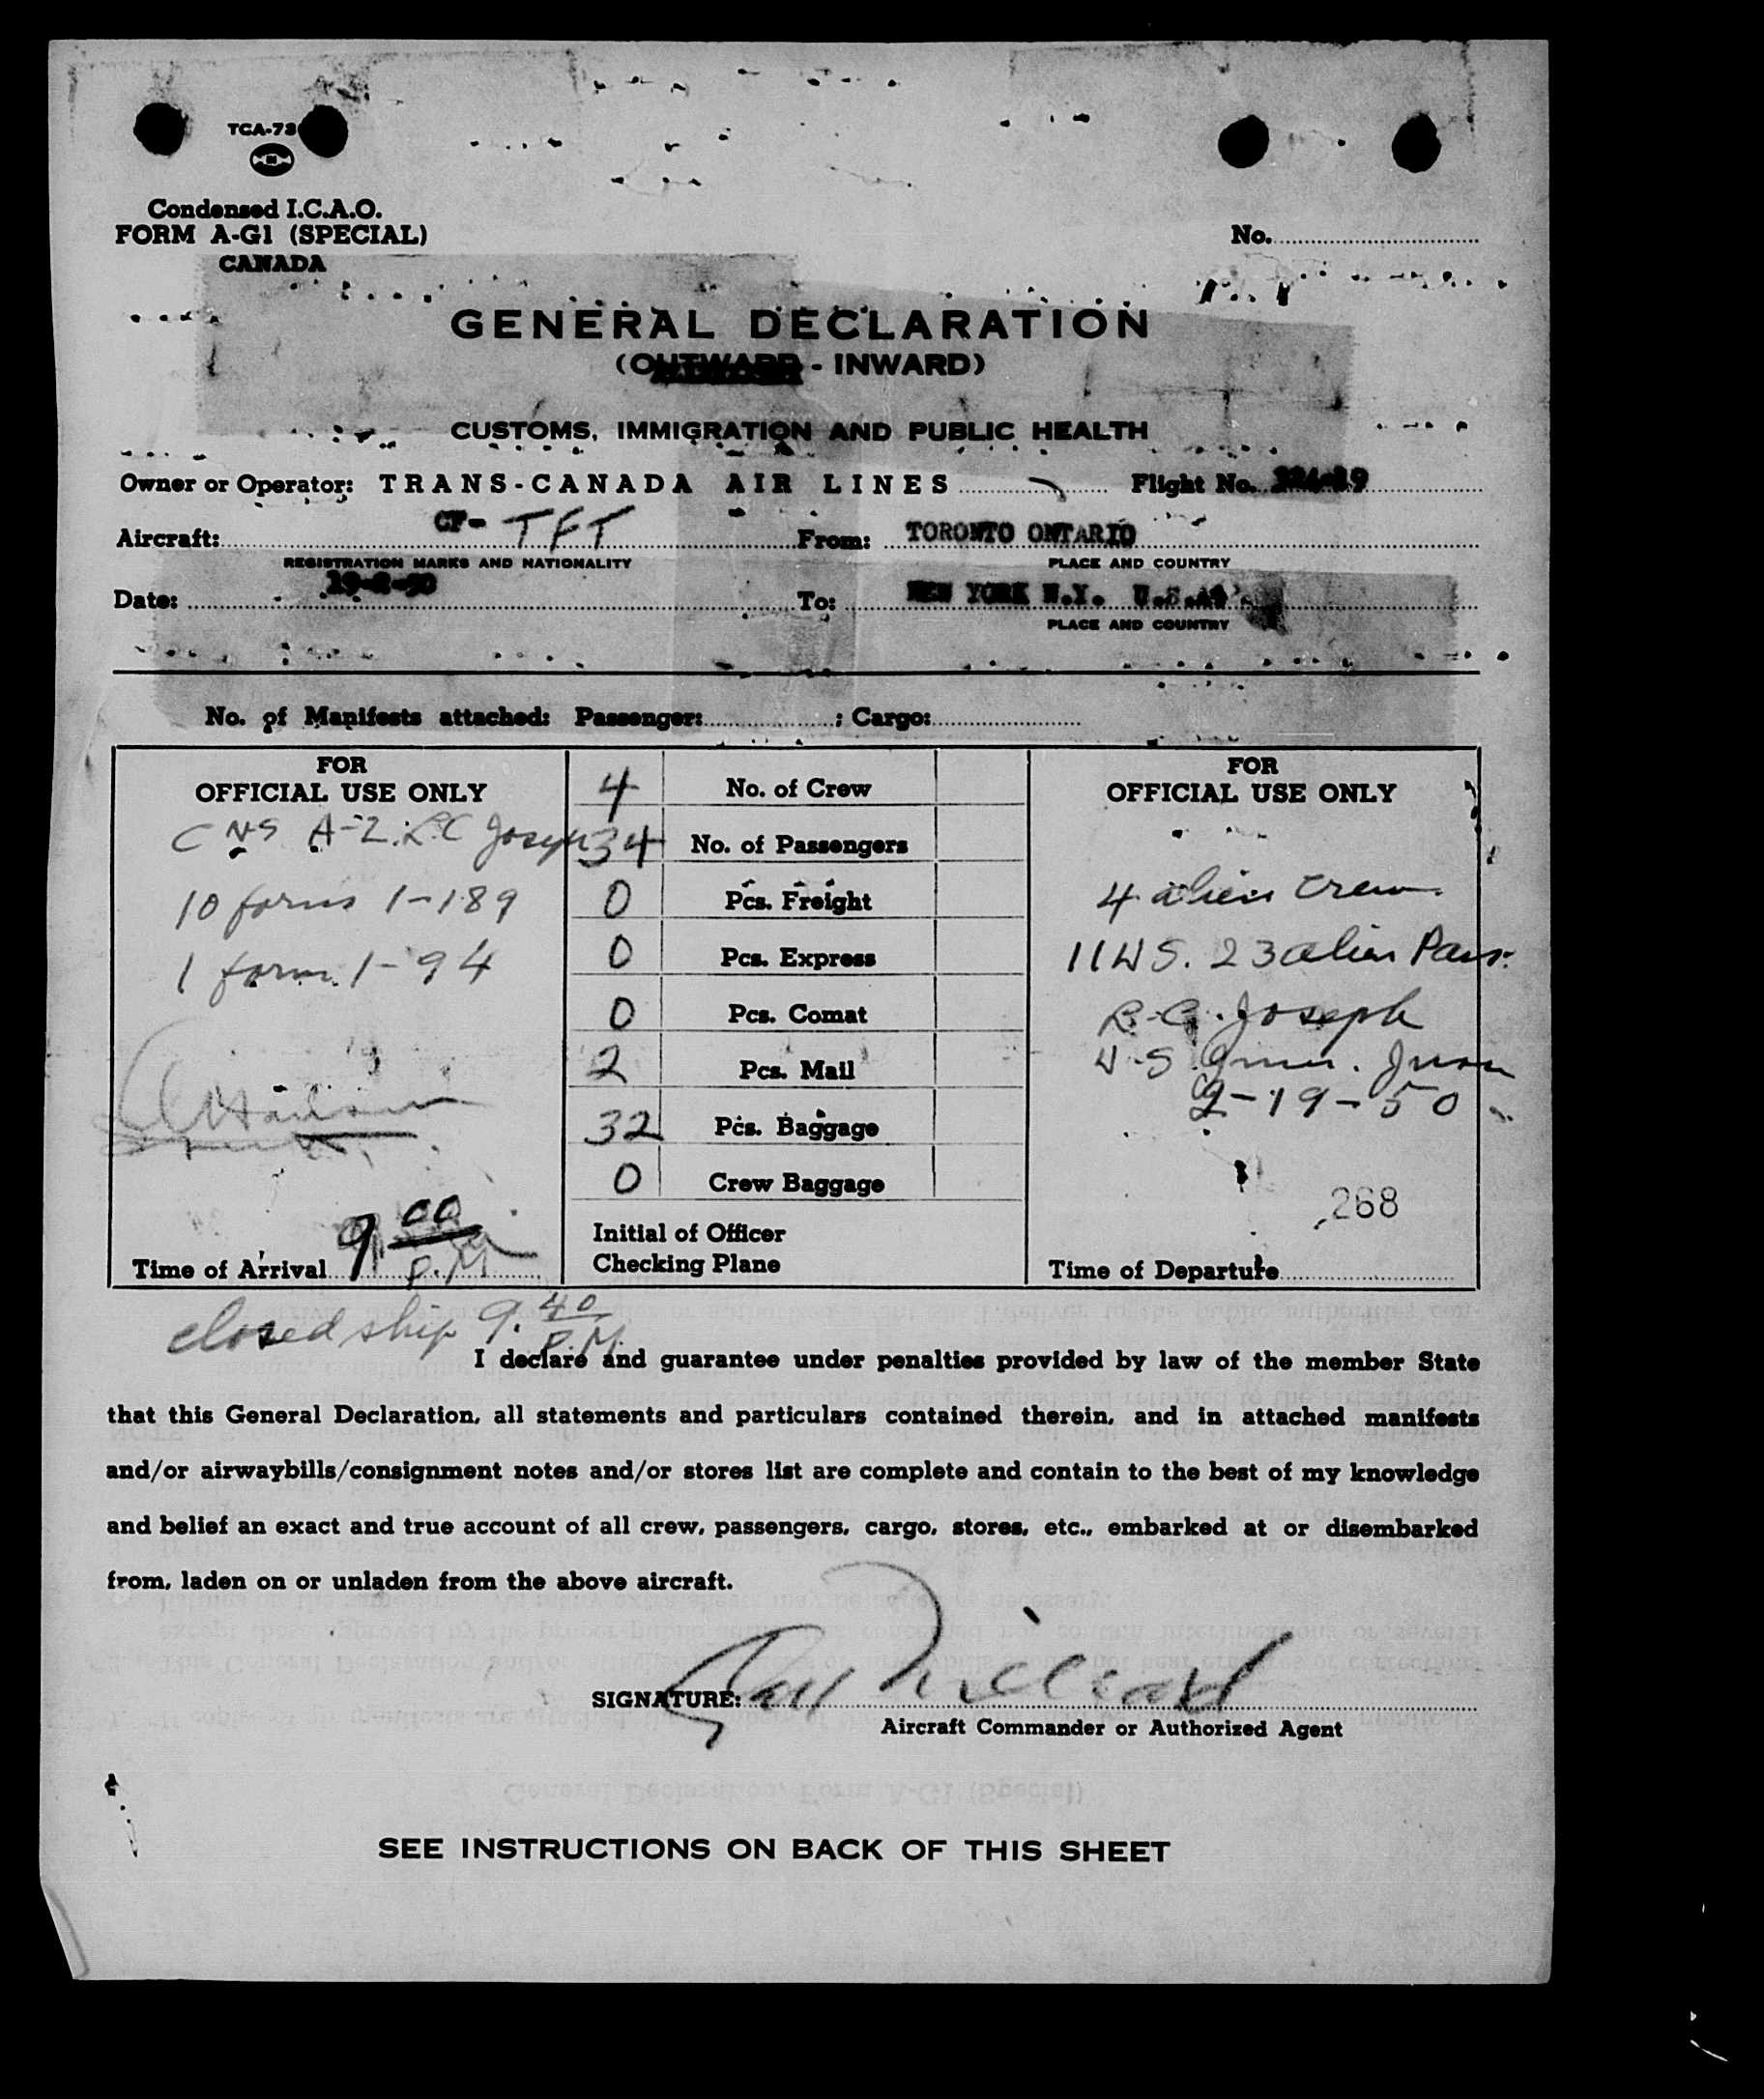 TCA-73
Condensed I.C.A.O.
FORM A-G1 (SPECIAL)
CANADA
No.
GENERAL DECLARATION
(OUTWARD - INWARD)
CUSTOMS, IMMIGRATION AND PUBLIC HEALTH
Owner or Operator: TRANS-CANADA AIR LINES Flight No. 324-19
Aircraft: CF- TFT From: TORONTO ONTARIO
REGISTRATION MARKS AND NATIONALITY PLACE AND COUNTRY
Date: 19-2-50 To: NEW YORK N.Y. U.S.A.
PLACE AND COUNTRY
No. of Manifests attached: Passenger: ; Cargo:
FOR
OFFICIAL USE ONLY
A-2. R.C Joseph
10 forms 1-189
1 form 1-94
Time of Arrival 9 00 P.M
4 No. of Crew
34 No. of Passengers
0 Pcs. Freight
0 Pcs. Express
0 Pcs. Comat
2 Pcs. Mail
32 Pcs. Baggage
0 Crew Baggage
Initial of Officer
Checking Plane
FOR
OFFICIAL USE ONLY
4 alien crew
11 US. 23 alien Pass.
R.C. Joseph
U.S. Imm.
2-19-50
268
Time of Departure
closed ship 9.40 P.M.
I declare and guarantee under penalties provided by law of the member State
that this General Declaration, all statements and particulars contained therein, and in attached manifests
and/or airwaybills/consignment notes and/or stores list are complete and contain to the best of my knowledge
and belief an exact and true account of all crew, passengers, cargo, stores, etc., embarked at or disembarked
from, laden on or unladen from the above aircraft.
SIGNATURE:
Aircraft Commander or Authorized Agent
SEE INSTRUCTIONS ON BACK OF THIS SHEET